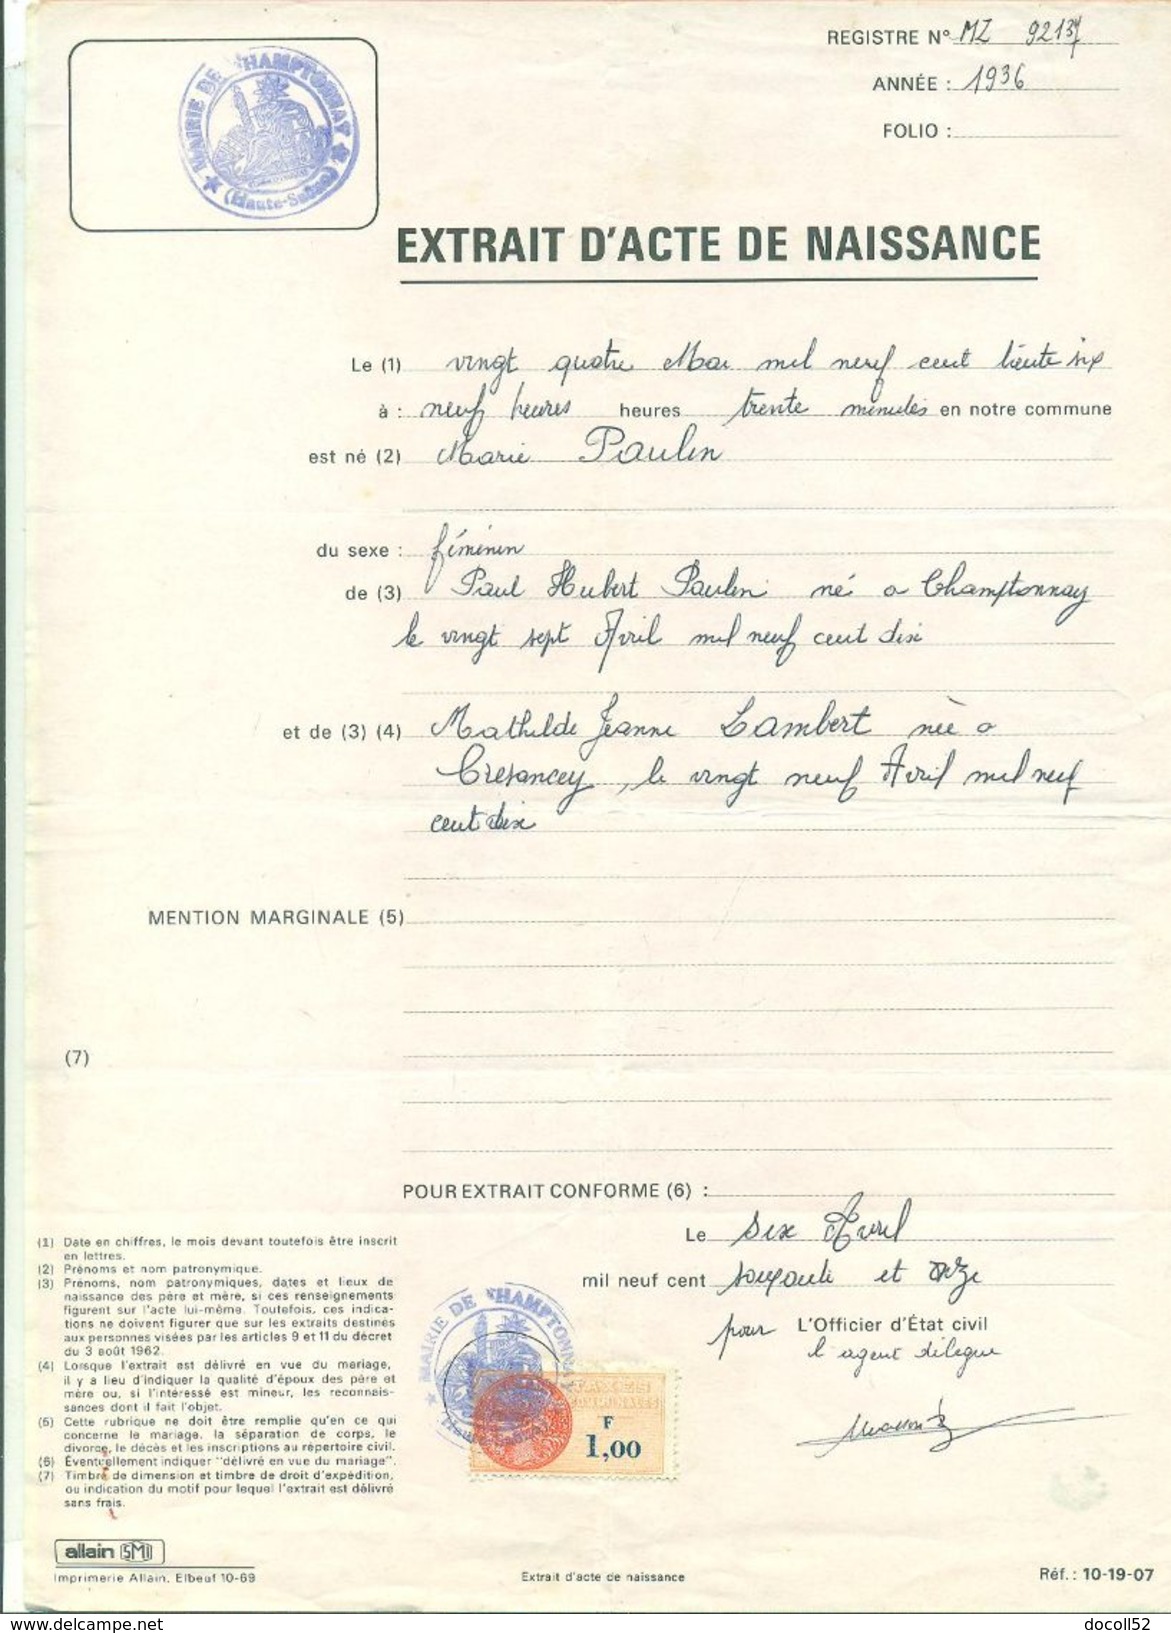 REGISTRE N° MZ 9213
ANNÉE : 1936
FOLIO :
MAIRIE DE CHAMPTONNAY
(Haute-Saône)
EXTRAIT D'ACTE DE NAISSANCE
Le (1) vingt quatre Mai mil neuf cent trente six
à : neuf heures heures trente minutes en notre commune
est né (2) Marie Paulin
du sexe : féminin
de (3) Paul Hubert Paulin né a Champtonnay
le vingt sept Avril mil neuf cent dix
et de (3) (4) Mathilde Jeanne Lambert née a
Cresancey, le vingt neuf Avril mil neuf
cent dix
MENTION MARGINALE (5)
(7)
POUR EXTRAIT CONFORME (6) :
Le six Avril
mil neuf cent soixante et onze
pour L'Officier d'État civil
l'agent délégué
MAIRIE DE CHAMPTONNAY
TAXES
COMMUNALES
F
1,00
(1) Date en chiffres, le mois devant toutefois être inscrit
en lettres.
(2) Prénoms et nom patronymique.
(3) Prénoms, nom patronymiques, dates et lieux de
naissance des père et mère, si ces renseignements
figurent sur l'acte lui-même. Toutefois, ces indica-
tions ne doivent figurer que sur les extraits destinés
aux personnes visées par les articles 9 et 11 du décret
du 3 août 1962.
(4) Lorsque l'extrait est délivré en vue du mariage,
il y a lieu d'indiquer la qualité d'époux des père et
mère ou, si l'intéressé est mineur, les reconnais-
sances dont il fait l'objet.
(5) Cette rubrique ne doit être remplie qu'en ce qui
concerne le mariage, la séparation de corps, le
divorce, le décès et les inscriptions au répertoire civil.
(6) Éventuellement indiquer "délivré en vue du mariage".
(7) Timbre de dimension et timbre de droit d'expédition,
ou indication du motif pour lequel l'extrait est délivré
sans frais.
allain SMI
Imprimerie Allain, Elbeuf 10-69
Extrait d'acte de naissance
Réf. : 10-19-07
docoll52